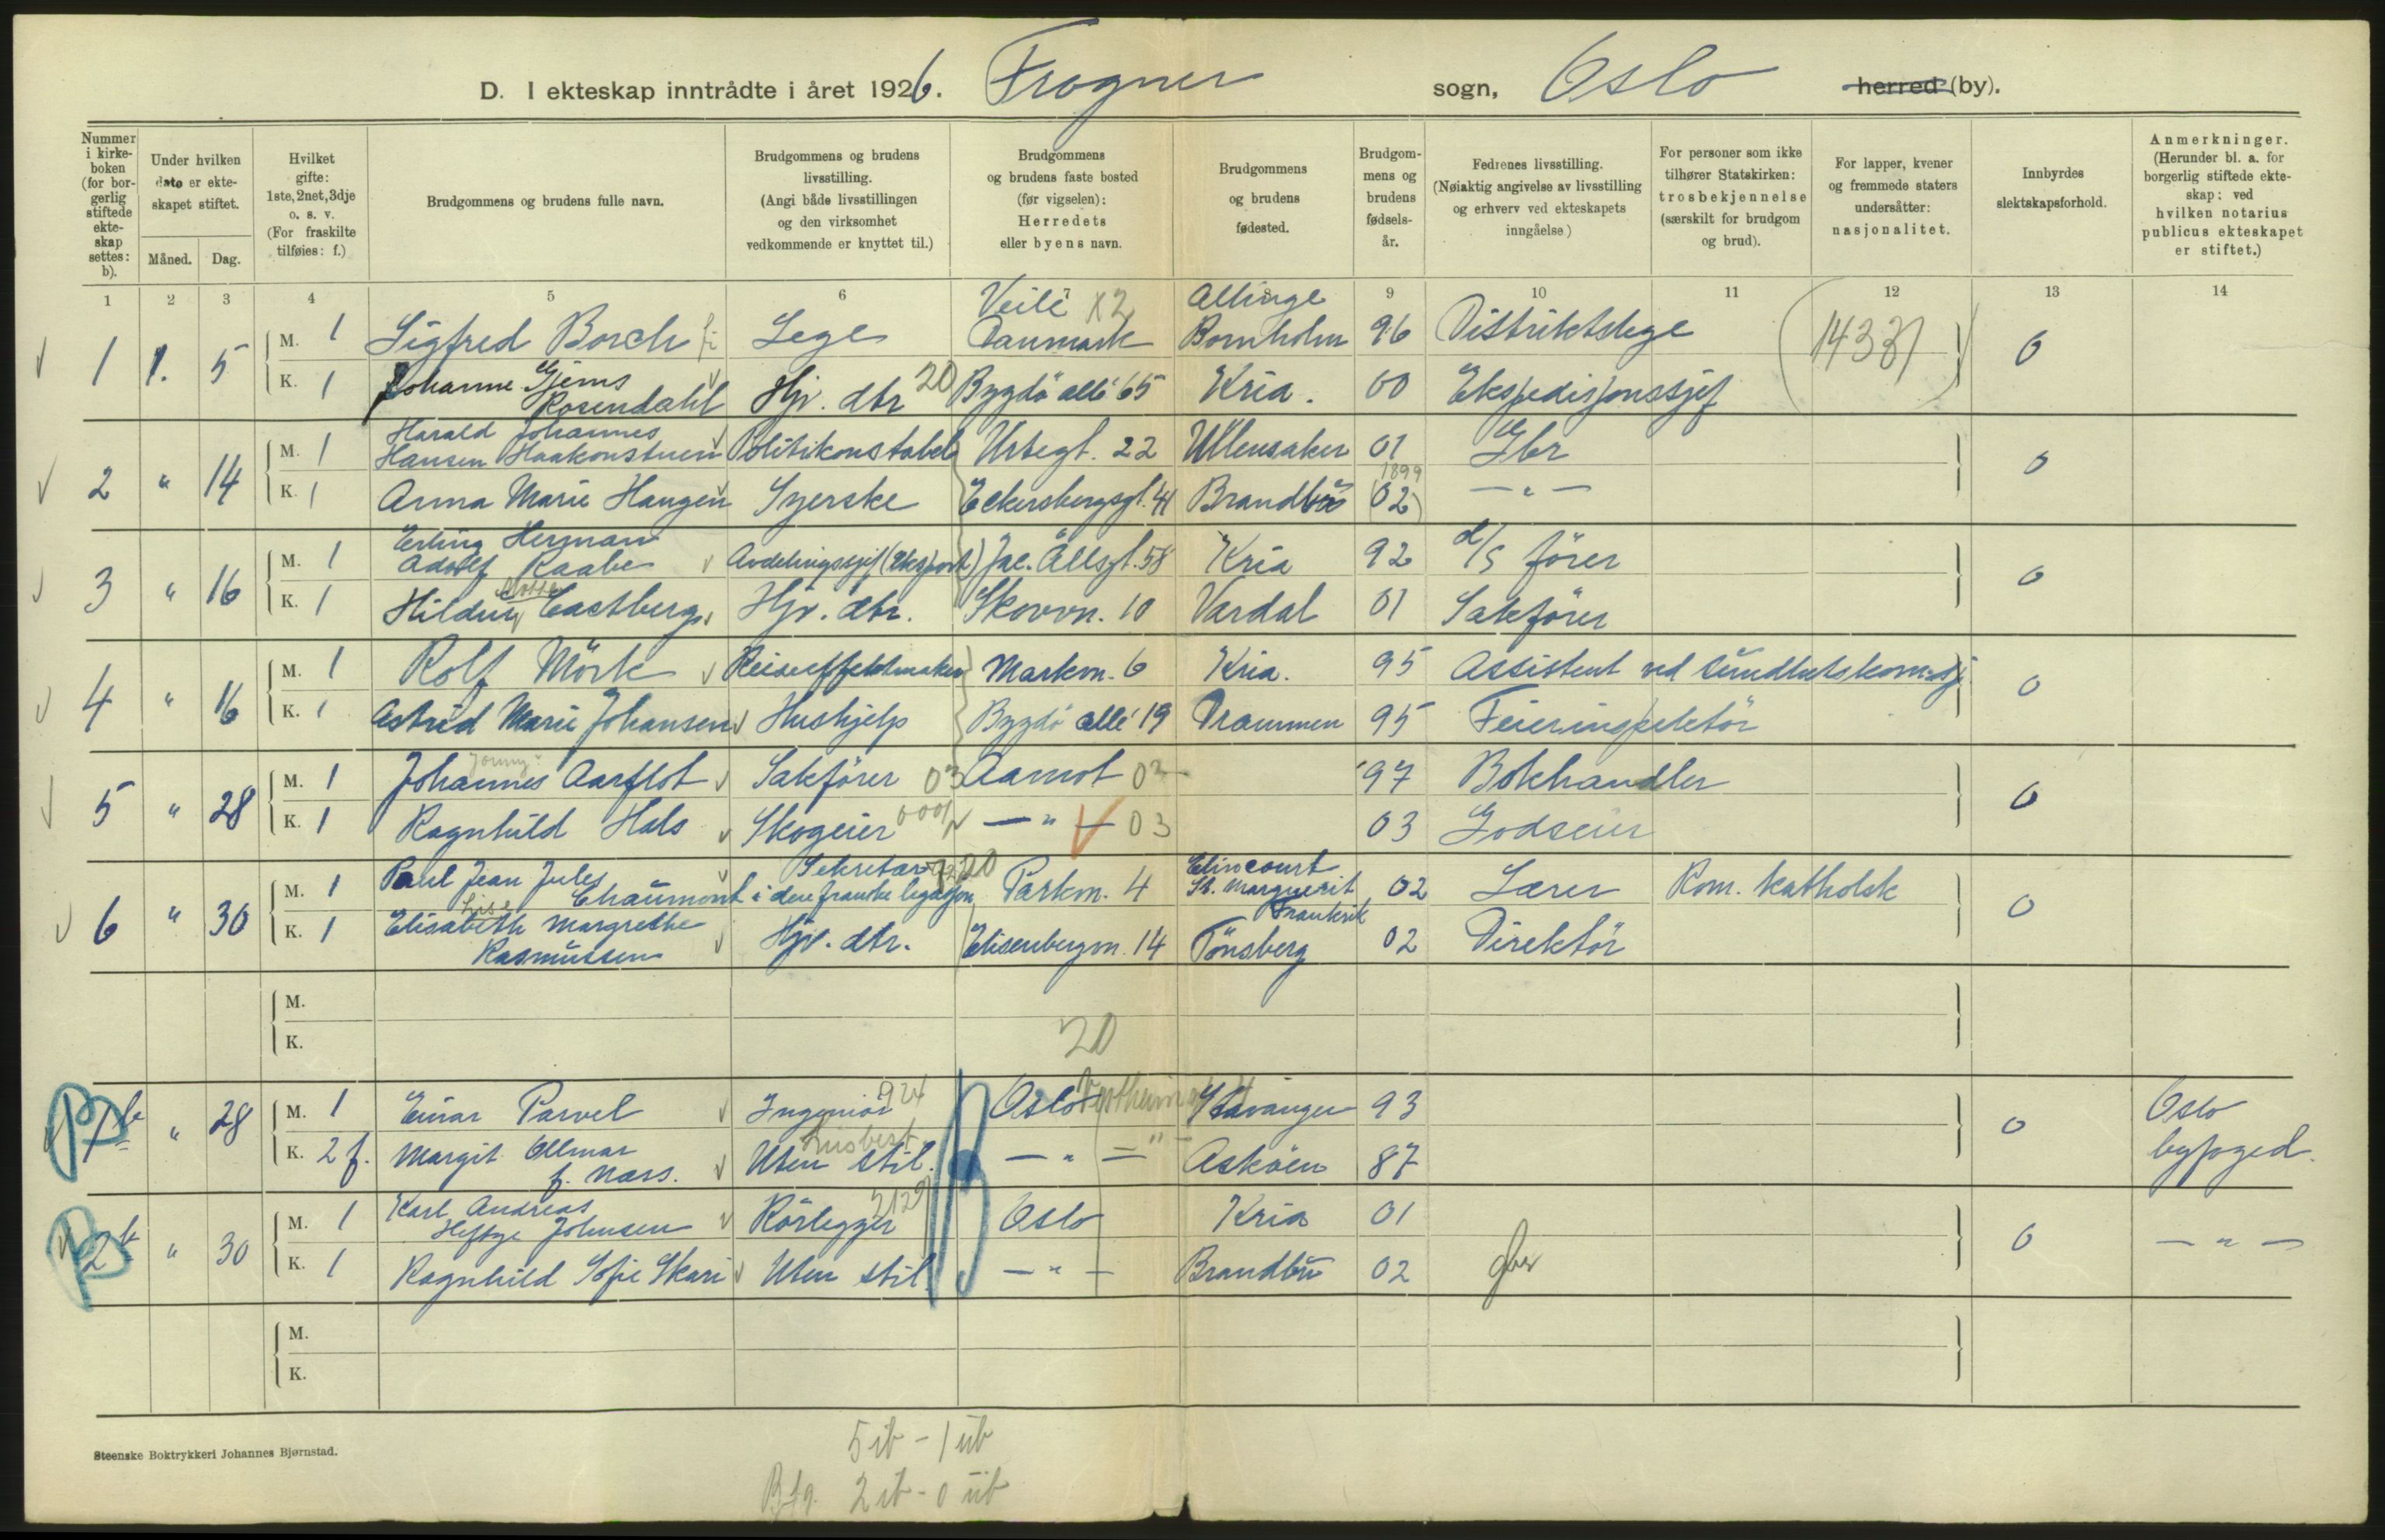 D. I ekteskap inntrådte i året 1926. Frogner sogn, Oslo herred (by).
Nummer i kirke-boken (for bor-gerlig stiftede ekte-skap settes: b).
Under hvilken dato er ekte-skapet stiftet.
Måned. Dag.
Hvilket gifte: 1ste, 2net, 3dje o. s. v. (For fraskilte tilføies: f.)
Brudgommens og brudens fulle navn.
Brudgommens og brudens livsstilling. (Angi både livsstillingen og den virksomhet vedkommende er knyttet til.)
Brudgommens og brudens faste bosted (før vigselen): Herredets eller byens navn.
Brudgommens og brudens fødested.
Brudgom-mens og brudens fødsels-år.
Fedrenes livsstilling. (Nøiaktig angivelse av livsstilling og erhverv ved ekteskapets inngåelse.)
For personer som ikke tilhører Statskirken: trosbekjennelse (særskilt for brudgom og brud).
For lapper, kvener og fremmede staters undersåtter: nasjonalitet.
Innbyrdes slektskapsforhold.
Anmerkninger. (Herunder bl. a. for borgerlig stiftede ekte-skap: ved hvilken notarius publicus ekteskapet er stiftet.)
1 2 3 4 5 6 7 8 9 10 11 12 13 14
1 1. 5 M. 1 Sigfred Borch Lege Veile Danmark x2 Allinge Bornholm 96 Distriktslege 0
K. 1 Johanne Gjems Rosendahl Hjv. dtr 20 Bygdö allé 65 Kria. 00 Ekspedisjonssjef
2 " 14 M. 1 Harald Johannes Hansen Haakonstuen Politikonstabel Urtegt. 22 Ullensaker 01 Gbr 0
K. 1 Anna Marie Haugen Syerske Eckersbergsgt. 41 Brandbu 1899 (02) — " —
3 " 16 M. 1 Erling Herman Adolf Raabe Avdelingssjef (eksport) Jac. Allsgt. 58 Kria 92 d/s förer 0
K. 1 Hildur Castberg Hjv. dtr. Skovvn. 10 Vardal 01 Sakförer
4 " 16 M. 1 Rolf Mörk Reiseeffektmaker Markvn. 6 Kria. 95 Assistent ved 0
K. 1 Astrid Marie Johansen Hushjelp Bygdö allé 19 Drammen 95 Feierinspektör
5 " 28 M. 1 Johannes Aarflot Sakförer 03 Aamot 03 97 Bokhandler 0
K. 1 Ragnhild Hals Skogeier — " — 03 03 Godseier
6 " 30 M. 1 Paul Jean Jules Chaumont Sekretær i den franske legasjon 20 Parkvn. 4 Elincourt St. Marguerit Frankrik 02 Lærer Rom. katholsk 0
K. 1 Elisabeth Margrethe Rasmussen Hjv. dtr. Elisenbergvn. 14 Tönsberg 02 Direktör
M.
K.
20
1b " 28 M. 1 Einar Parvel Ingeniör 924 Oslo Stavanger 93 0 Oslo byfoged.
K. 2 f. Margit Ellmar f. Næss. Uten stil. husbest — " — Asköen 87
2b " 30 M. 1 Karl Andreas Heftye Johnsen Rörlegger Oslo Kria 01 0 — " —
K. 1 Ragnhild Sofie Skari Uten stil. — " — Brandbu 02 gbr
M.
K.
Steenske Boktrykkeri Johannes Bjørnstad.
5 ib - 1 ub
Bfg. 2 ib - 0 ub